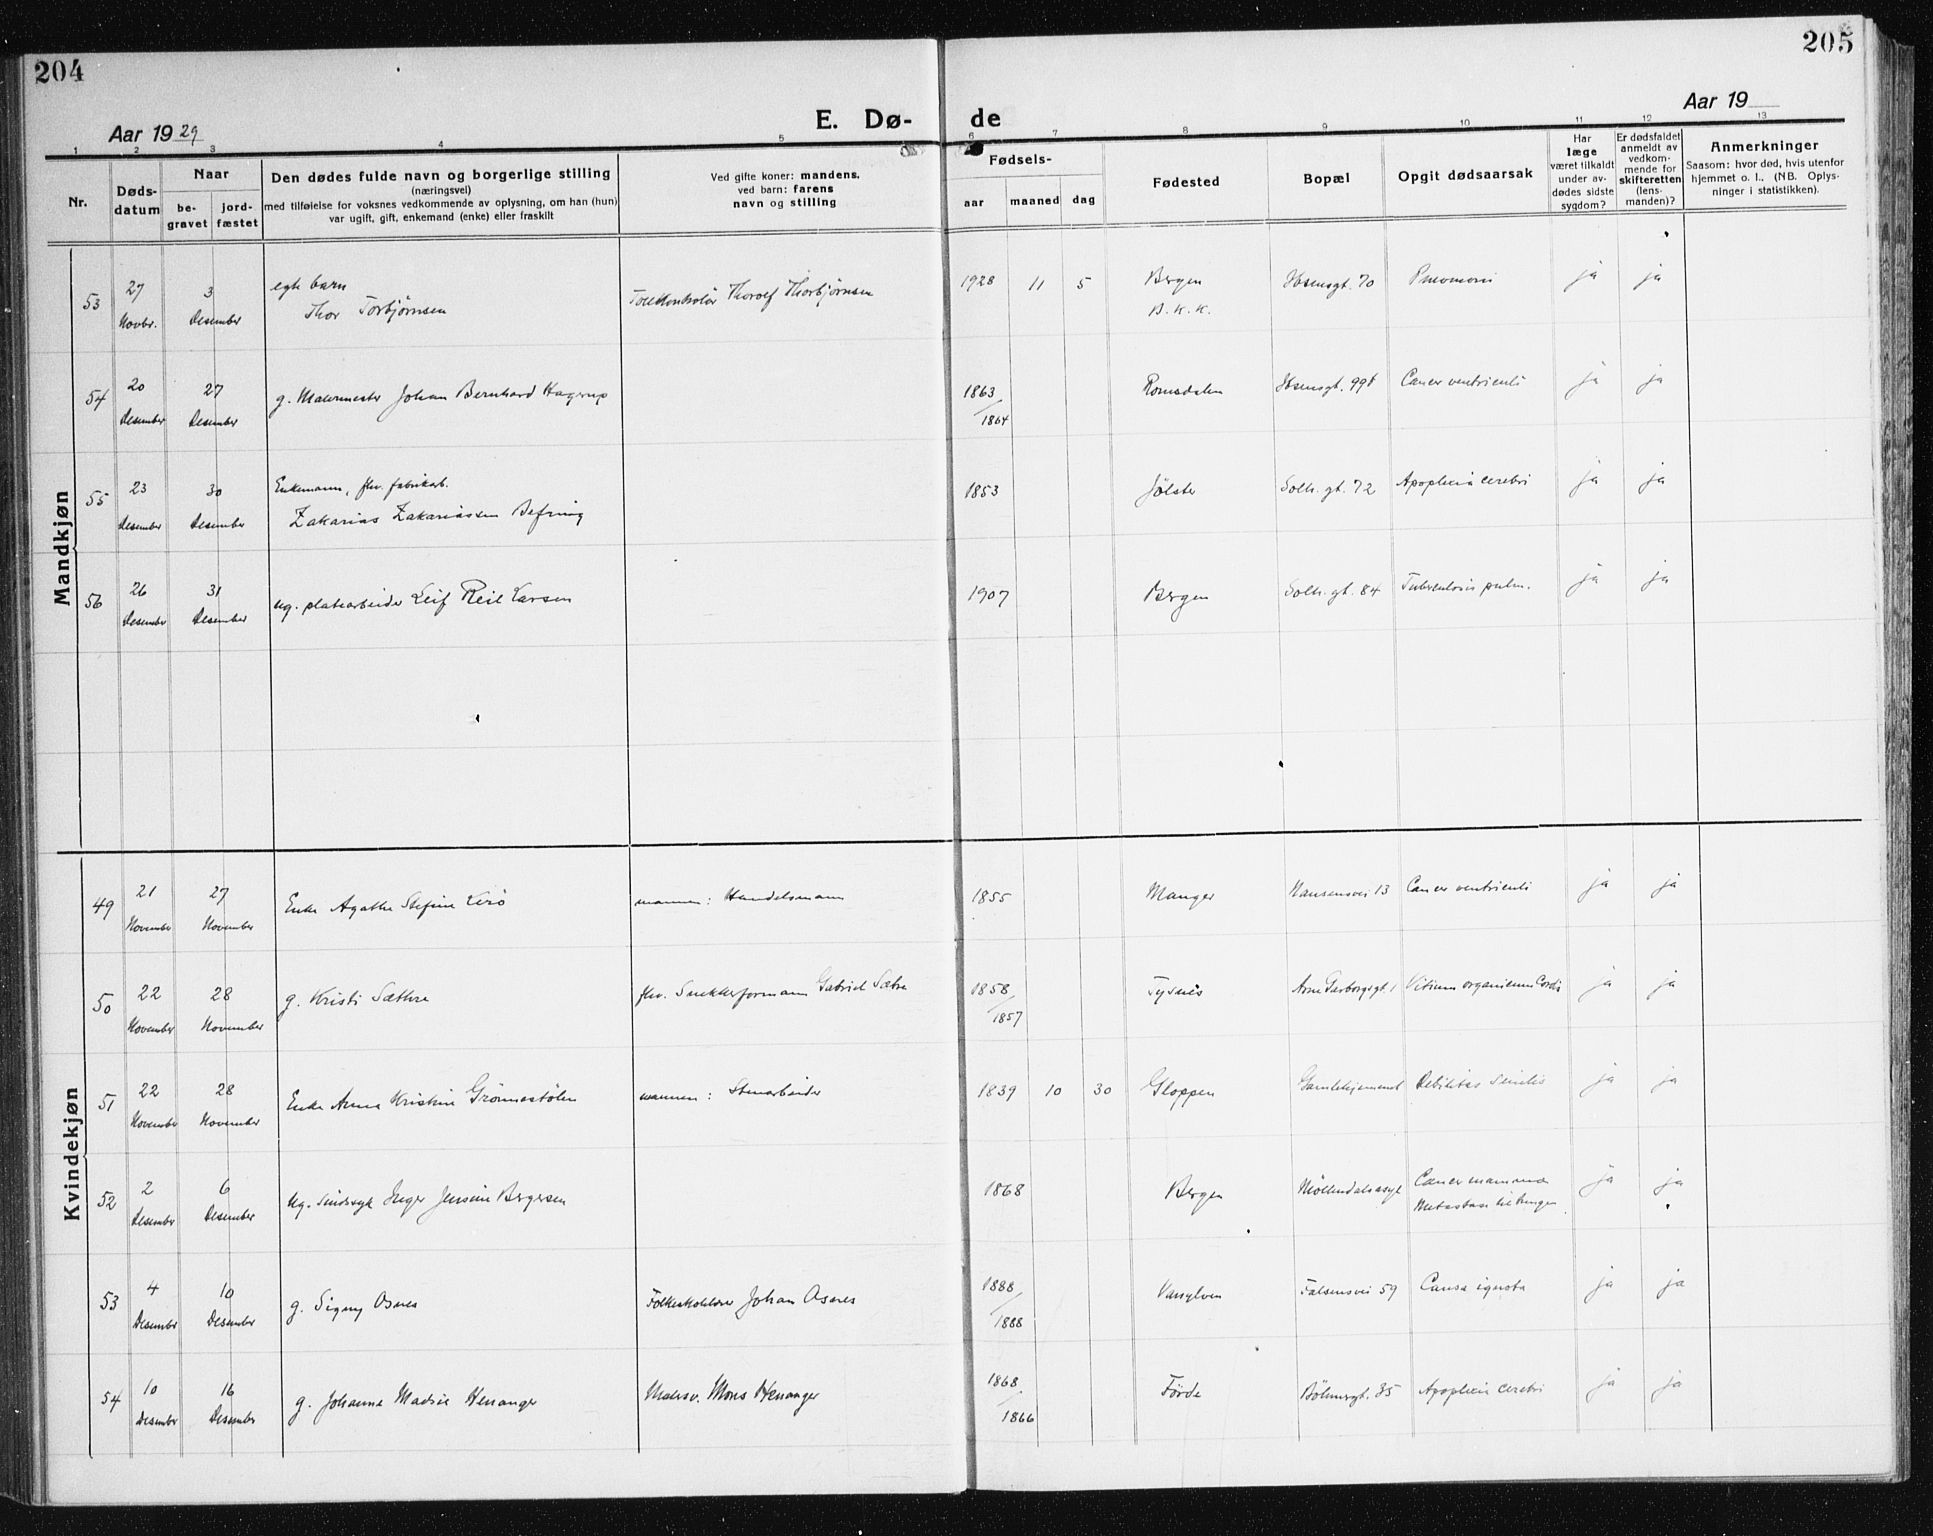 204
205
Aar 1929
E. Dø- de
Aar 19
1 2 3 4 5 6 7 8 9 10 11 12 13
Nr.
Døds-
datum
Naar
be-
gravet
jord-
fæstet
Den dødes fulde navn og borgerlige stilling
(næringsvei)
med tilføielse for voksnes vedkommende av oplysning, om han (hun)
var ugift, gift, enkemand (enke) eller fraskilt
Ved gifte koner: mandens.
ved barn: farens
navn og stilling
Fødsels-
aar maaned dag
Fødested
Bopæl
Opgit dødsaarsak
Har
læge
været tilkaldt
under av-
dødes sidste
sygdom?
Er dødsfaldet
anmeldt av
vedkom-
mende for
skifteretten
(lens-
manden)?
Anmerkninger
Saasom: hvor død, hvis utenfor
hjemmet o. l.. (NB. Oplys-
ninger i statistikken).
Mandkjøn
53 27 3 egte barn Tollkontrolør Thorolf Thorbjørnsen 1928 11 5 Bergen Ibsensgt. 70 Pneumoni ja ja
Novbr. Desember Thor Torbjørnsen B. K. K.
54 20 27 g. Malermester Johan Bernhard Hagerup 1863 Romsdalen Ibsensgt. 99 Cancer ventriculi ja ja
Desember Desember /1864
55 23 30 Enkemann, fhv. fabrikarb. 1853 Jølster Solh. gt. 72 Apoplexia cerebri ja ja
Desember Desember Zakarias Zakariassen Befring
56 26 31 ug. platearbeider Leif Reil Larsen 1907 Bergen Solh. gt. 84 Tuberculosis pulm. ja ja
Desember Desember
Kvindekjøn
49 21 27 Enke Agathe Stefine Lerø mannen: Handelsmann 1855 Manger Hansensvei 13 Cancer ventriculi ja ja
November November
50 22 28 g. Kristi Sæthre fhv. Snekkerformann Gabriel Sætre 1858 Tysnes Arne Garborgsgt. 1 Vitium organicum Cordis ja ja
November November /1857
51 22 28 Enke Anna Kristine Grønnestølen mannen: Stenarbeider 1839 10 30 Gloppen Gamlehjemmet Debilitas senilis ja ja
November November
52 2 6 ug. Sindssyk Inger Jensine Bergersen 1868 Bergen Møllendalsasyl Cancer mamma ja ja
Desember Desember Metastase til lungen
53 4 10 g. Signy Osnes Folkeskolelærer Johan Osnes 1888 Vanylven Falsensvei 59 Causa ignota ja ja
Desember Desember /1888
54 10 16 g. Johanna Madsie Henanger Malersv. Mons Henanger 1868 Førde Bøhmergt. 35 Apoplexia cerebri ja ja
Desember Desember /1866